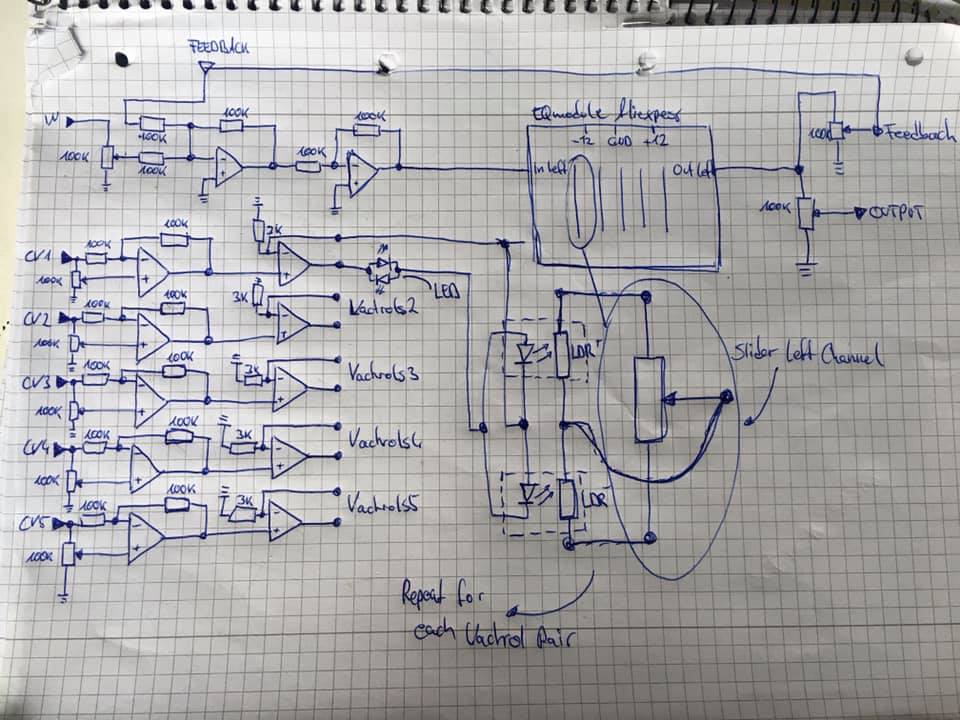 FEEDBACK
IN
100K
100K
100K
100K
100K
100K
EQmodule Aliexpress
-12 GND +12
In left
Out left
100K
Feedback
100K
OUTPUT
CV1
100K
100K
100K
3K
LED
CV2
100K
100K
100K
3K
Vactrols2
CV3
100K
100K
100K
3K
Vactrols3
CV4
100K
100K
100K
3K
Vactrols4
CV5
100K
100K
100K
3K
Vactrols5
LDR
LDR
Slider Left Channel
Repeat for
each Vactrol Pair